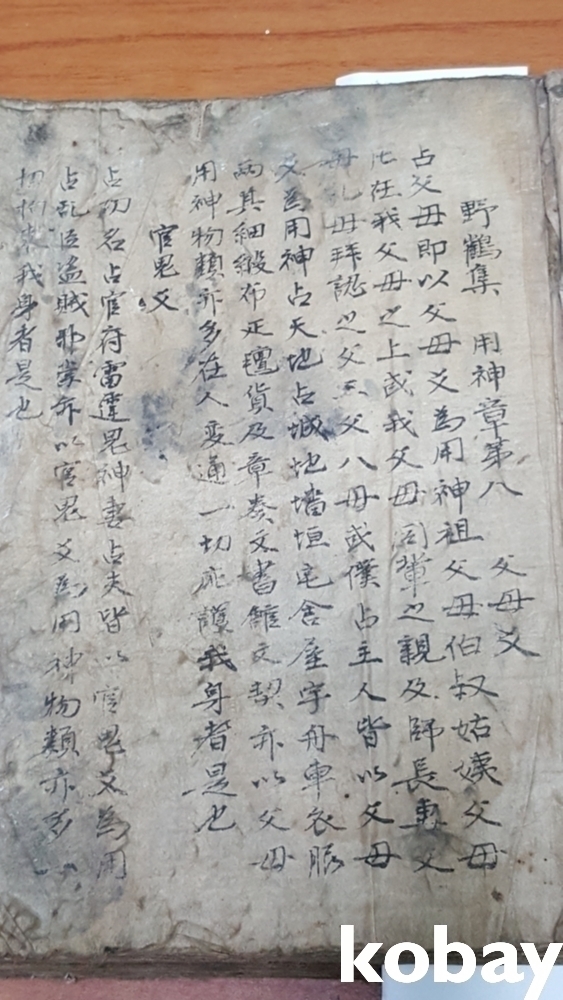 野鶴集 用神章第八 父母爻
占父母即以父母爻為用神祖父母伯叔姑姨父母
在我父母之上或我父母同輩之親及師長妻父
母乳母拜認之父三父八母或僕占主人皆以父母
爻為用神占天地占城池墻垣宅舍屋宇舟車衣服
雨具細緞布疋氊貨及章奏文書舘文契亦以父母
用神物類亦多在人變通一切庇護我身者是也
官鬼爻
占功名占官府雷霆鬼神妻占夫皆以官鬼爻為用
占乱臣盗賊邪崇亦以官鬼爻為用神物類亦多一
切拘束我身者是也
kobay